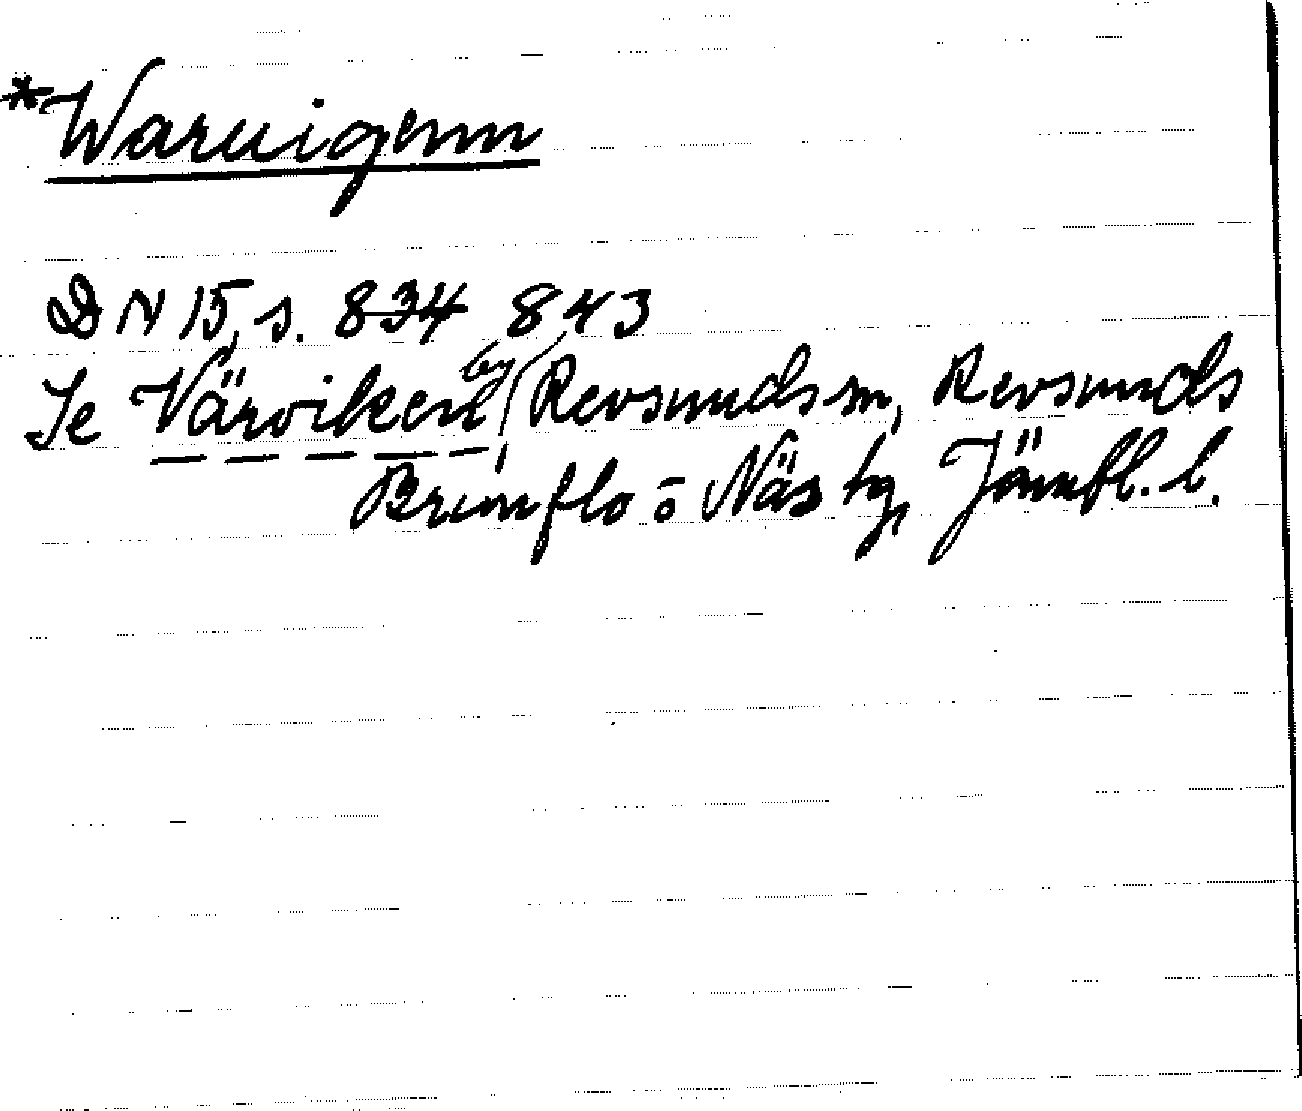 *Waruigenn
DN 15, s. 834 843
Se Värviken by, Revsunds sn, Revsunds
Brunflo o Näs tg, Jämtl. l.